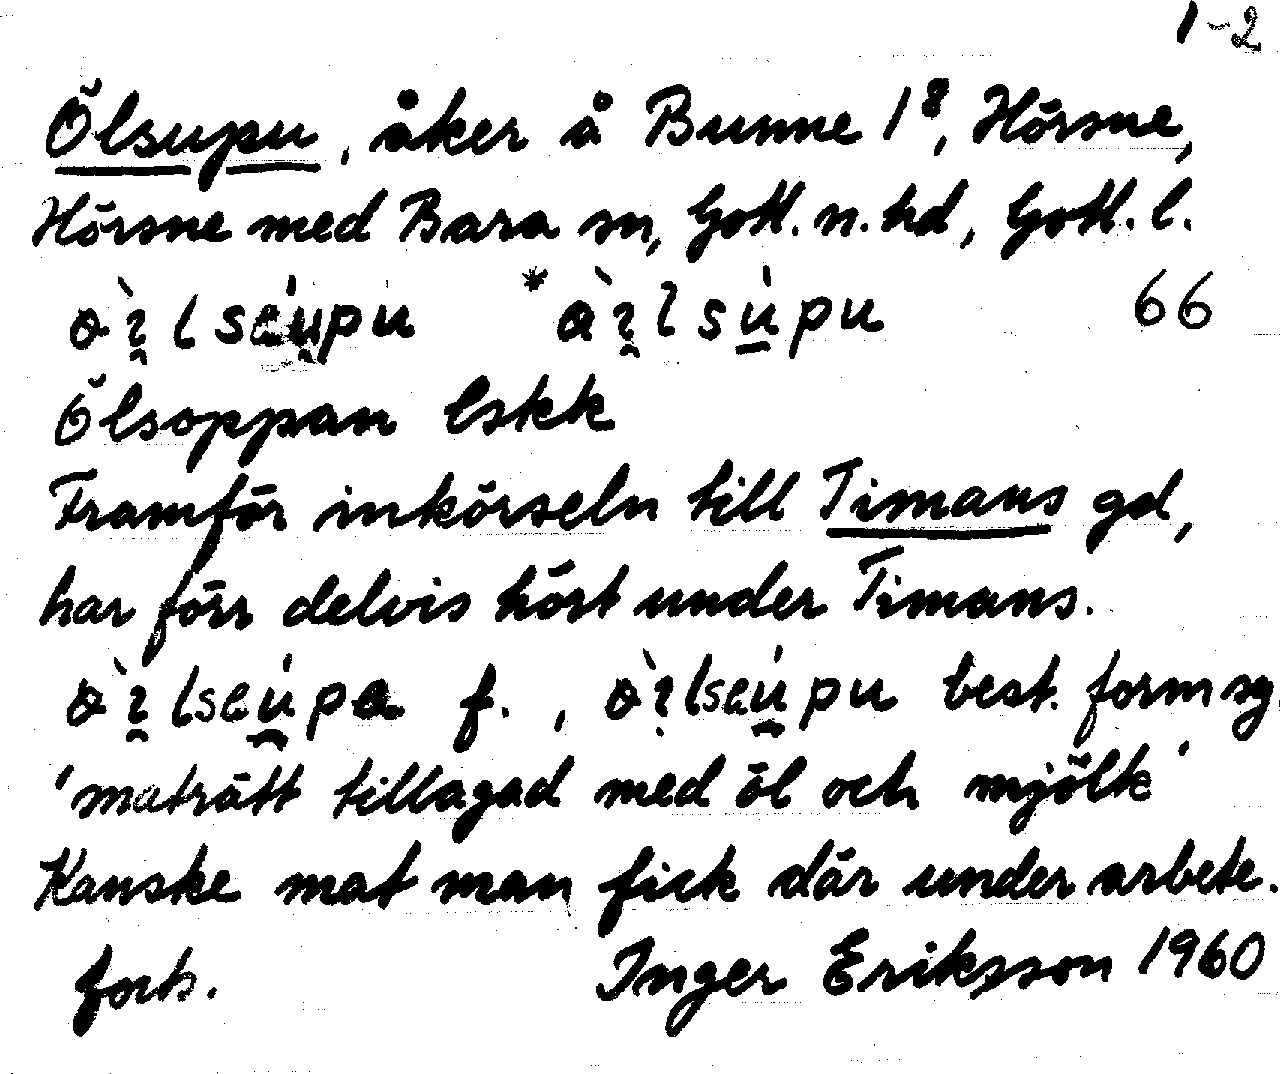 1-2
Ölsupu, åker å Bunne 1⁸, Hörsne,
Hörsne med Bara sn, Gotl. n. hd, Gotl. l.
66
Ölsoppan Eskk
Framför inkörseln till Timans gd,
har förr delvis hört under Timans.
f., best. form sg.
'maträtt tillagad med öl och mjölk'
Kanske mat man fick där under arbete.
forts. Inger Eriksson 1960